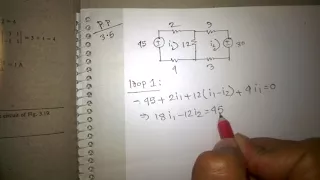 P.P
3.5
2 9
45 i₁ 12 i₂ 30
4 3
Loop 1:
-45 + 2i₁ + 12(i₁-i₂) + 4i₁=0
⇒ 18i₁-12i₂=45